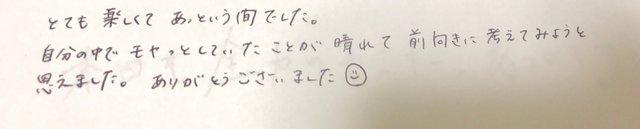 とても楽しくて あっという間でした。
自分の中で モヤっとしていたことが 晴れて 前向きに 考えてみようと
思えました。 ありがとうございました☺